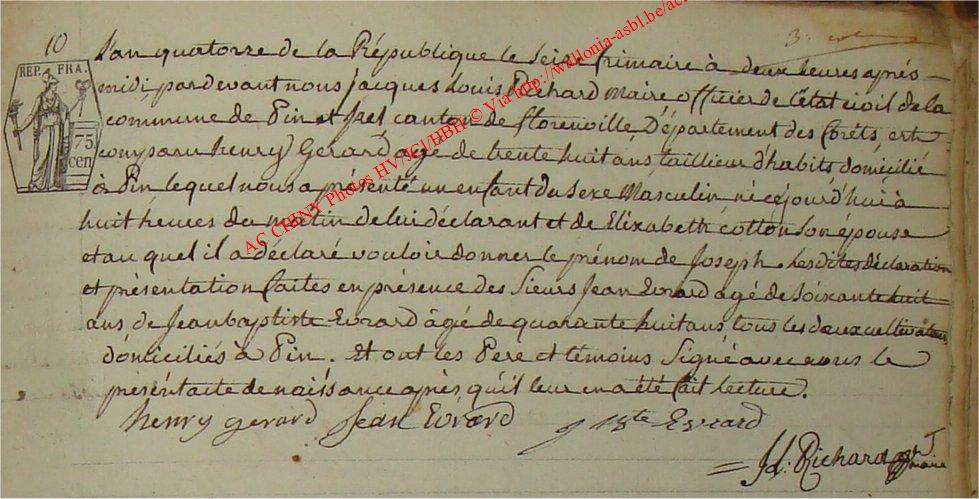 10
3.
REP. FRA.
75
cen
L'an quatorze de la République le Seize frimaire à deux heures après-
midi, pardevant nous jacques Louis Richard Maire officier de l'état civil de la
commune de Pin et Izel canton de florenville Département des forêts, est
comparu henry Gerard agé de trente huit ans taillieur d'habits domicilié
à Pin lequel nous a présenté un enfant du Sexe Masculin né cejourd'hui à
huit heures du matin de lui déclarant et de Elizabeth cotton Son épouse
et au quel il a déclaré vouloir donner le prénom de Joseph. Les dites déclaration
et présentation faites en présence des Sieurs Jean Evrard agé de Soixante huit
ans de Jean baptiste Evrard âgé de quarante huit ans tous les deux cultivateurs
domiciliés à Pin. Et ont les Pere et témoins Signé avec nous le
présent acte de naissance après qu'il leur en a été fait lecture.
henry gerard Jean Evrard J Bte Evrard
JL: Richard
maire
AC CHINY Photos HV/JCL/HBH © Via http://wallonia-asbl.be/ac.